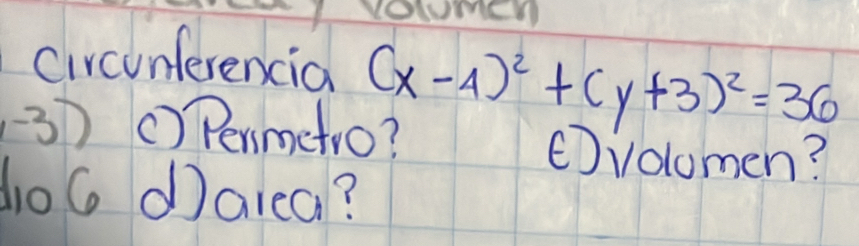 Volumen
Circunferencia (x-1)² + (y+3)² = 36
,-3) c) Perimetro? E) volumen?
dio 6 d) area?